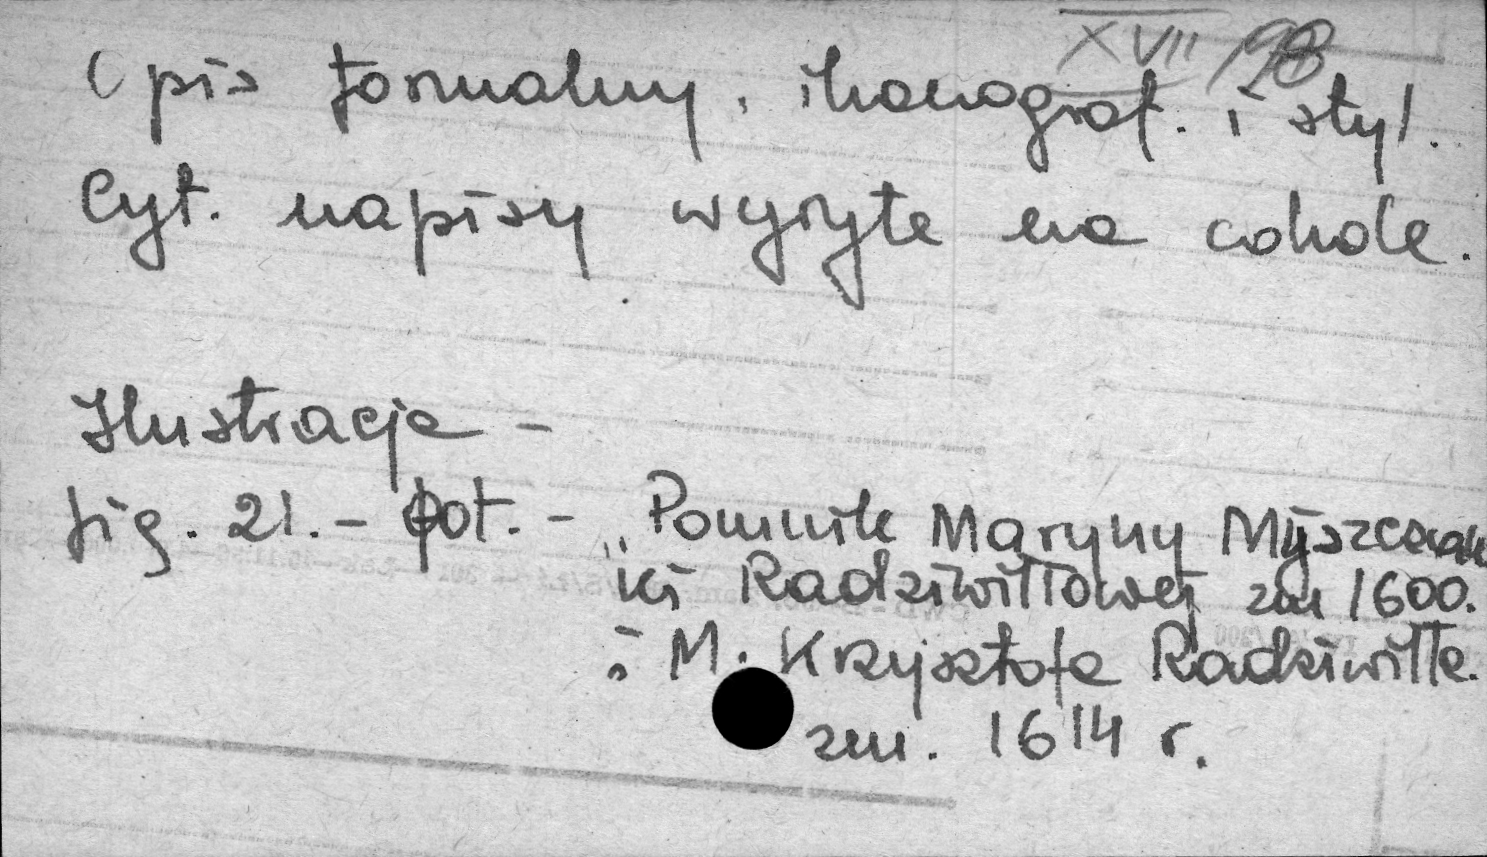 XVII /98
Opis formalny, ikonograf. i styl.
Cyt. napisy wyryte na cokole.
Ilustracje -
fig. 21. - fot. - „Pomnik Maryny Myszcow
ki Radziwiłłowej zm 1600.
i M. Krzysztofa Radziwiłła.
zm. 1614 r.